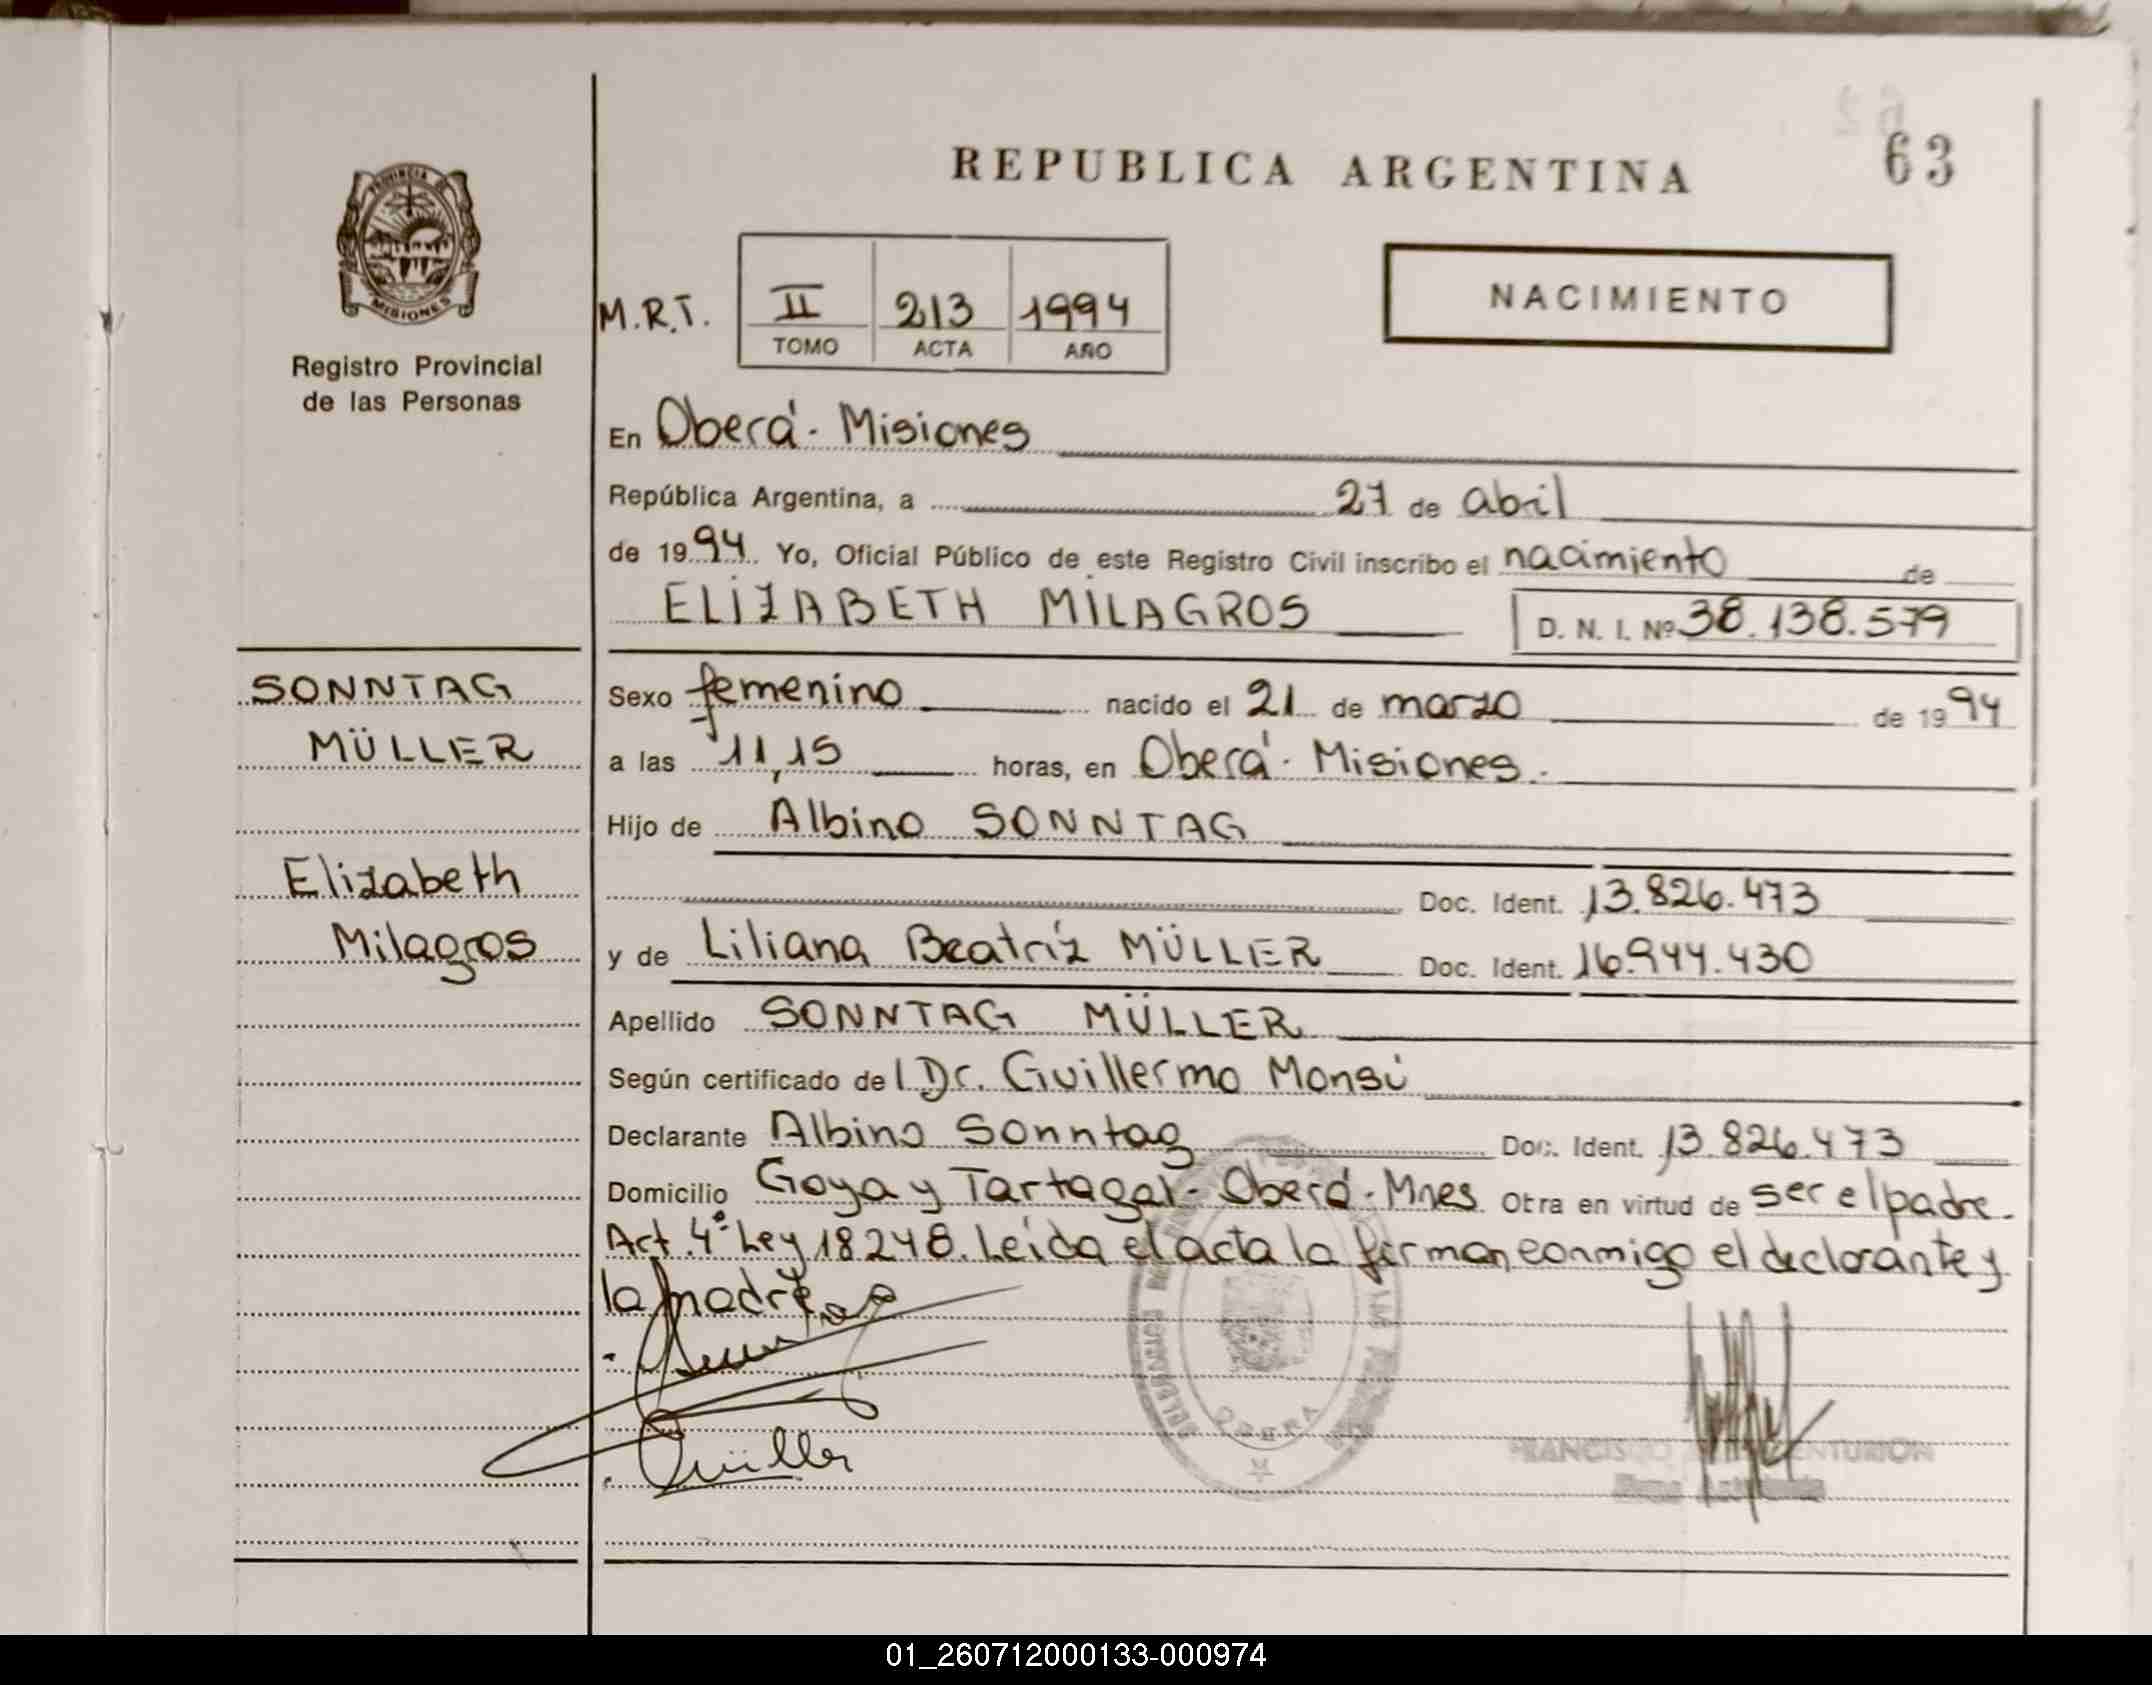 REPUBLICA ARGENTINA
63
PROVINCIA DE
MISIONES
Registro Provincial
de las Personas
M.R.T.
II 213 1994
TOMO ACTA AÑO
NACIMIENTO
En Oberá - Misiones
República Argentina, a 27 de abril
de 1994 Yo, Oficial Público de este Registro Civil inscribo el nacimiento de
ELIZABETH MILAGROS D. N. I. Nº 38.138.579
SONNTAG
MÜLLER
Elizabeth
Milagros
Sexo femenino nacido el 21 de marzo de 1994
a las 11,15 horas, en Oberá - Misiones.
Hijo de Albino SONNTAG
Doc. Ident. 13.826.473
y de Liliana Beatríz MÜLLER Doc. Ident. 16.944.430
Apellido SONNTAG MÜLLER
Según certificado del Dr. Guillermo Monsú
Declarante Albino Sonntag Doc. Ident. 13.826.473
Domicilio Goya y Tartagal - Oberá - Mnes Otra en virtud de ser el padre.
Art. 4º Ley 18248. Leída el acta la firman conmigo el declarante y
la madre
Müller
OBERA
FRANCISCO CENTURION
01_260712000133-000974